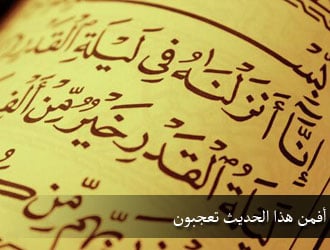 إِنَّا أَنزَلْنَاهُ فِي لَيْلَةِ الْقَدْرِ
لَيْلَةُ الْقَدْرِ خَيْرٌ مِّنْ أَلْفِ
رَبِّهِم مِّن
أفمن هذا الحديث تعجبون